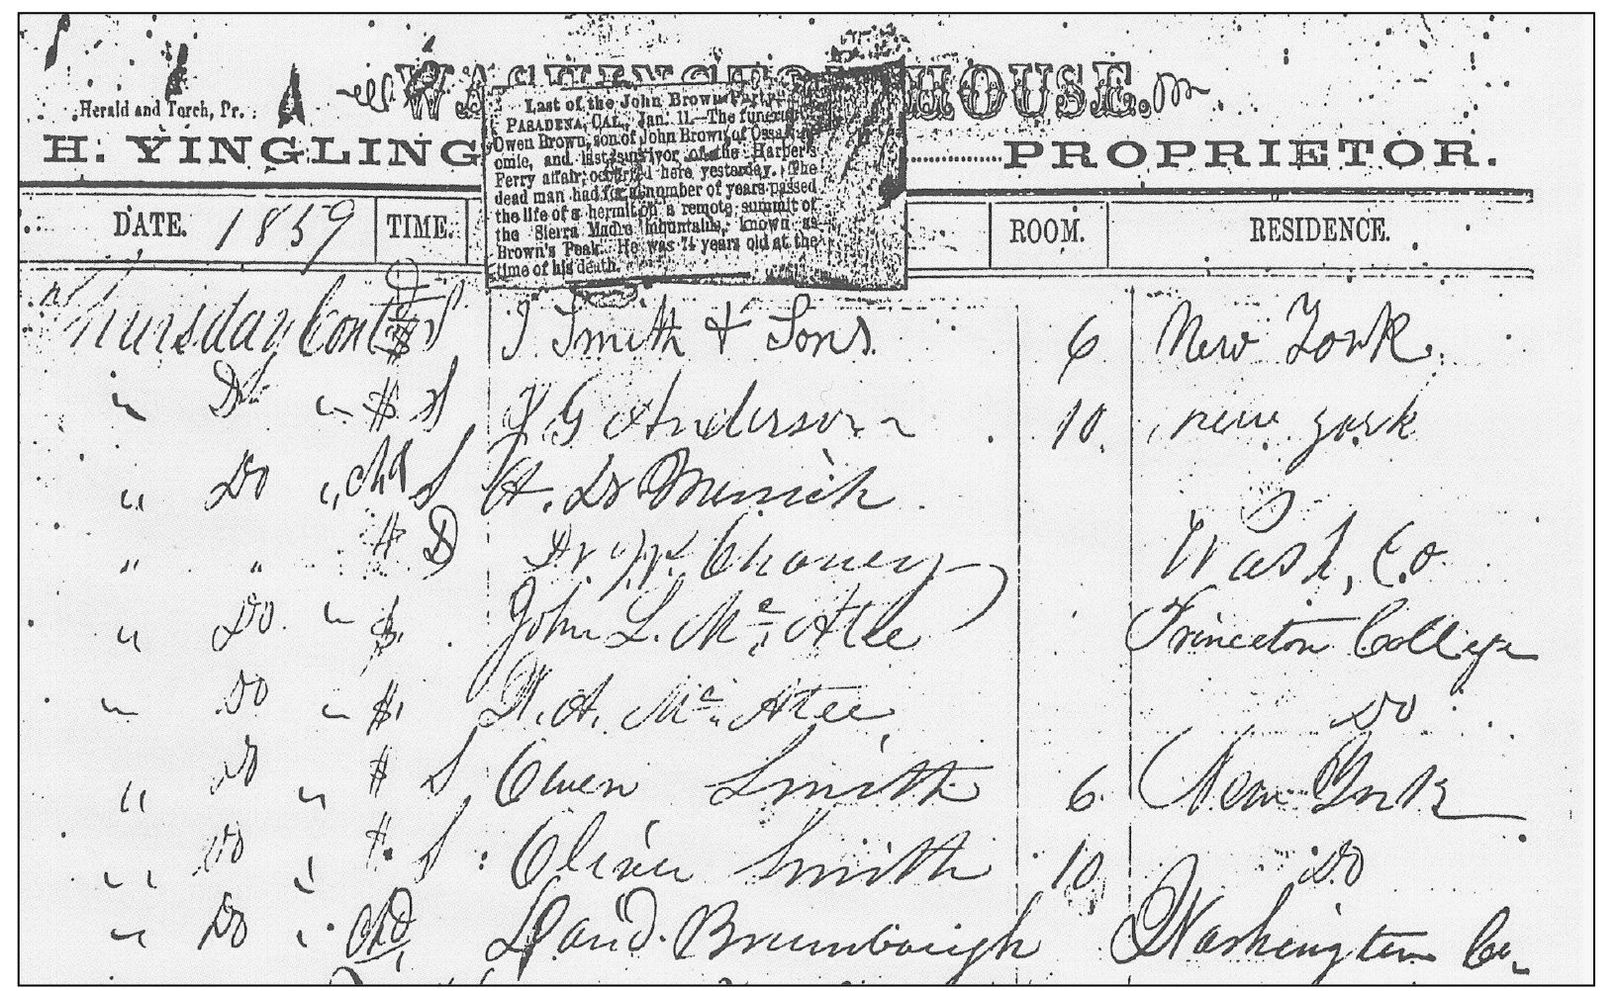 WASHINGTON HOUSE.
Herald and Torch, Pr.
H. YINGLING PROPRIETOR.
Last of the John Brown Party.
PASADENA, CAL., Jan. 11.—The funeral of
Owen Brown, son of John Brown, of Ossawat-
omie, and last survivor of the Harper's
Ferry affair, occurred here yesterday. The
dead man had for a number of years passed
the life of a hermit on a remote summit of
the Sierra Madre mountains, known as
Brown's Peak. He was 74 years old at the
time of his death.
DATE. 1859 TIME. ROOM. RESIDENCE.
Thursday Cont $ S I Smith & Sons 6 New York.
" Do " $ S J G Anderson 10. new york
" Do " chd S
" " $ D Dr Wash, Co
" Do. " $. John L. Mc. Atee Princeton College
" Do " $. W. A. Mc. Atee, Do
" Do " $ S Owen Smith 6 New York
" Do " $. S Oliver Smith 10 Do
" Do " chd, David. Brumbaugh Washington Co,